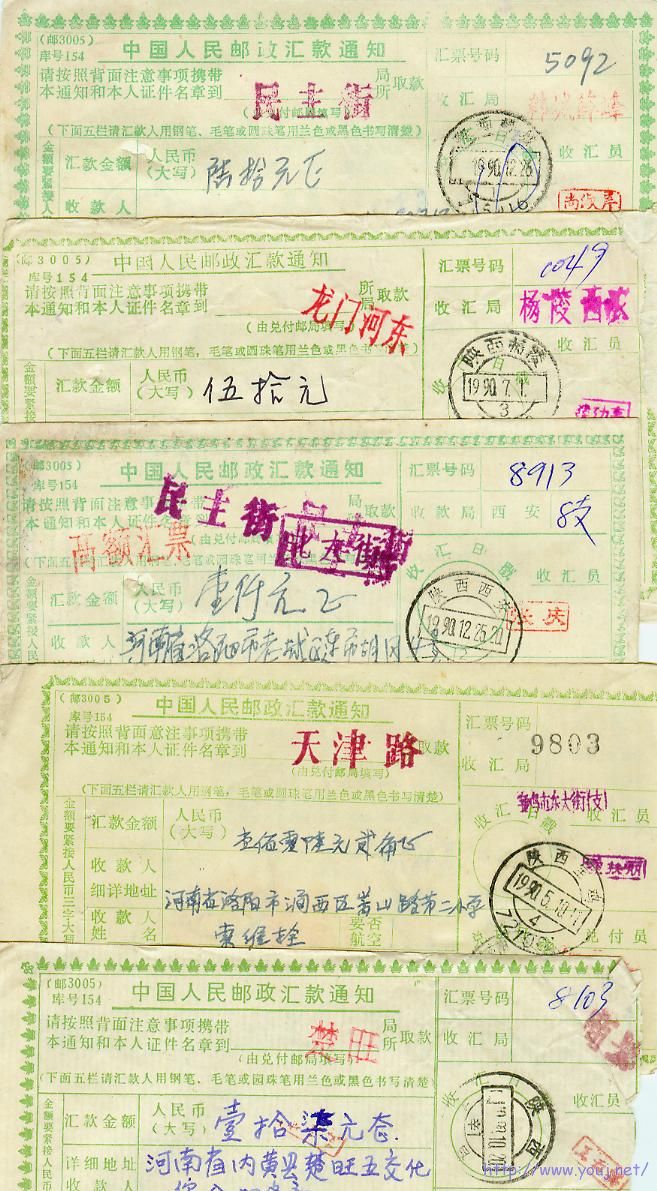 (邮3005)
库号154
中国人民邮政汇款通知
汇票号码
5092
请按照背面注意事项携带
本通知和本人证件名章到
民主街
局
所
取款
收汇局
(下面五栏请汇款人用钢笔、毛笔或圆珠笔用兰色或黑色书写清楚)
收汇员
汇款金额
人民币
(大写)
陆拾元
1990.12.26
收款人
(邮3005)
库号154
中国人民邮政汇款通知
汇票号码
请按照背面注意事项携带
本通知和本人证件名章到
龙门河东
所
局
取款
收汇局
杨陵
(由兑付邮局填写)
(下面五栏请汇款人用钢笔,毛笔或圆珠笔用兰色或黑色书写清楚)
汇款金额
人民币
(大写)
伍拾元
陕西
1990.7.1.
3
(邮3005)
库号154
中国人民邮政汇款通知
汇票号码
8913
请按照背面注意事项携带
本通知和本人证件名章到
民主街
北大街
取款
收款局
西安
8支
高额汇票
收汇员
汇款金额
人民币
(大写)
壹仟元
陕西西安
1990.12.25.20
收款人
河南省洛阳市老城区
(邮3005)
库号154
中国人民邮政汇款通知
汇票号码
9803
请按照背面注意事项携带
本通知和本人证件名章到
天津路
取款
收汇局
(由兑付邮局填写)
(下面五栏请汇款人用钢笔,毛笔或圆珠笔用兰色或黑色书写清楚)
宝鸡市东大街(支)
金额要紧接人民币三字大写
汇款金额
人民币
(大写)
壹佰零陆元贰角
收款人
细详地址
河南省洛阳市涧西区嵩山路第二小学
陕西宝鸡
1990.5.10.11
4
收款人
姓名
索维拴
要否
航空
兑付员
(邮3005)
库号154
中国人民邮政汇款通知
汇票号码
8103
请按照背面注意事项携带
本通知和本人证件名章到
楚旺
局
所
取款
收汇局
(由兑付邮局填写)
(下面五栏请汇款人用钢笔,毛笔或圆珠笔用兰色或黑色书写清楚)
收汇员
汇款金额
人民币
(大写)
壹拾柒元
陕西
详细地址
河南省内黄县楚旺五交化
http://www.youj.net/